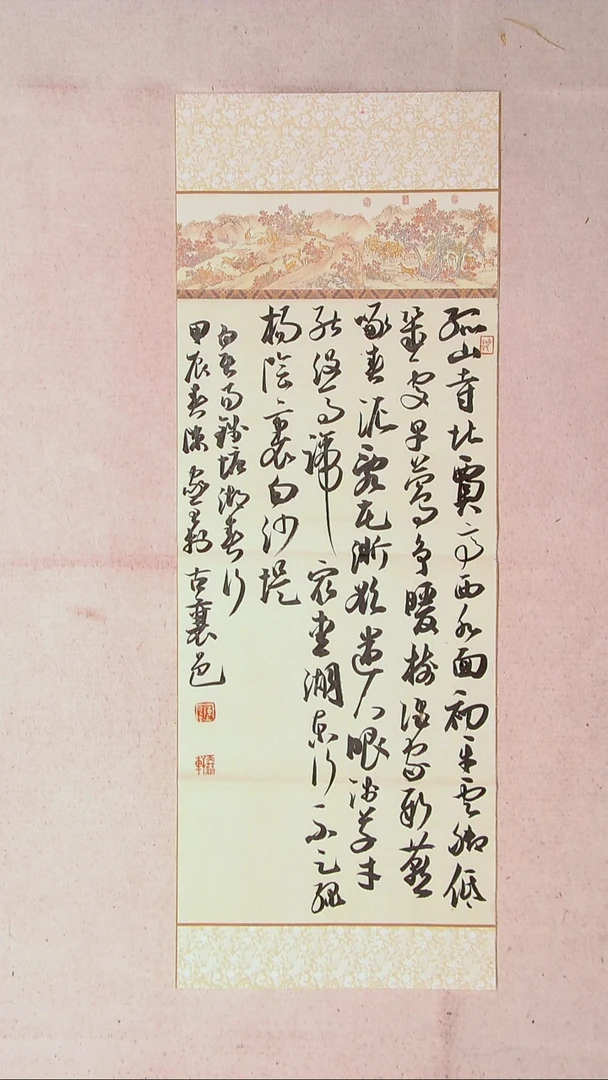 孤山寺北賈亭西水面初平雲腳低
幾處早鶯爭暖樹誰家新燕
啄春泥亂花漸欲迷人眼淺草才
能沒馬蹄最愛湖東行不足綠
楊陰裏白沙堤
白居易錢塘湖春行
甲辰春深 古襄邑